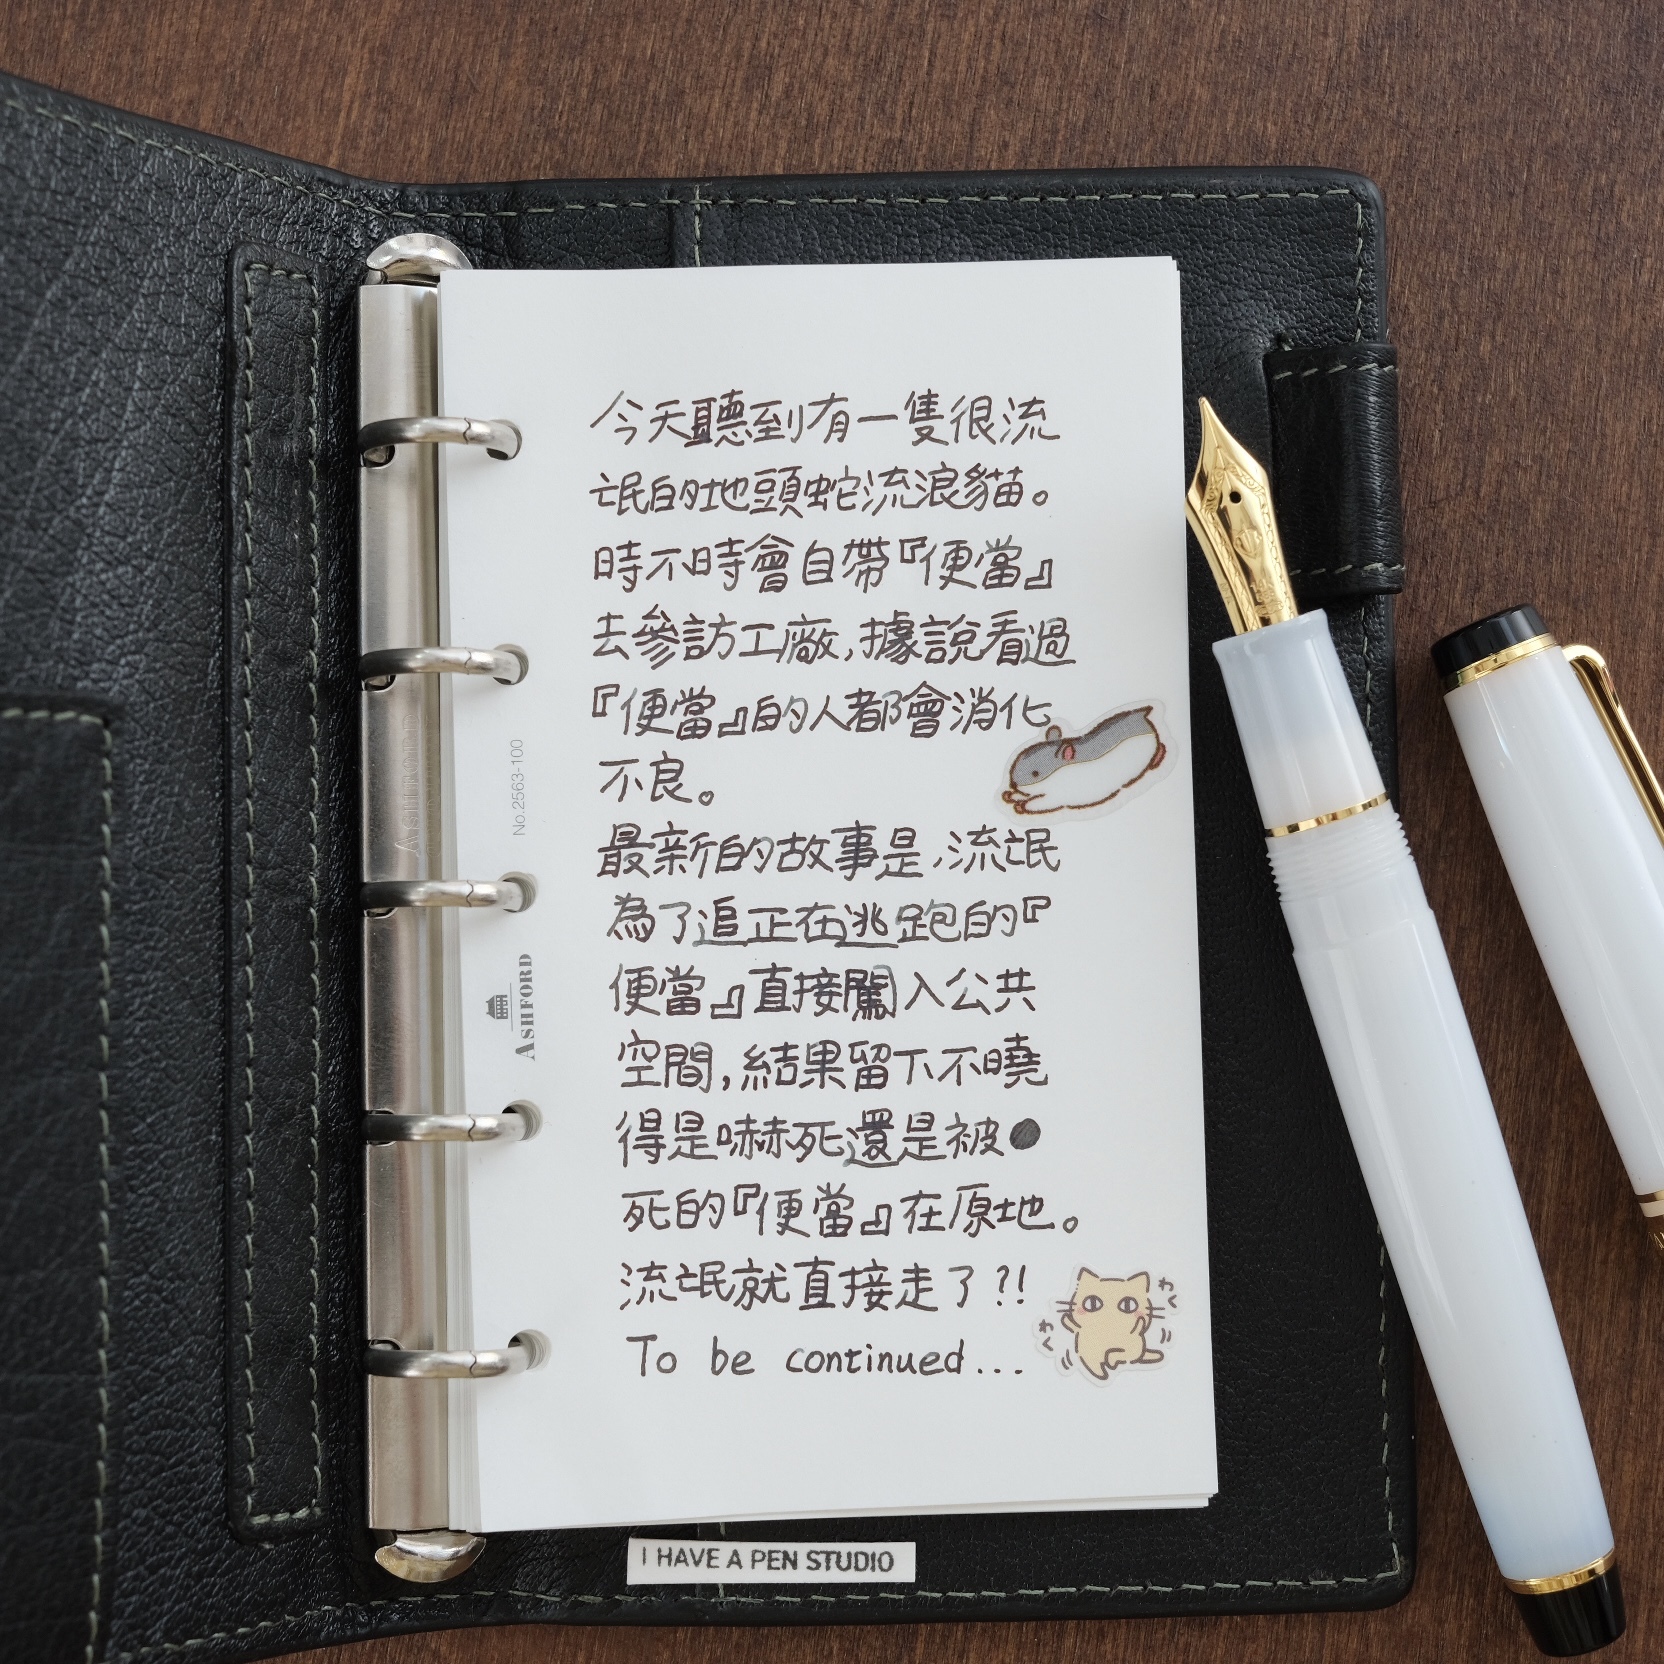 今天聽到有一隻很流
氓的地頭蛇流浪貓。
時不時會自帶『便當』
去參訪工廠,據說看過
『便當』的人都會消化
不良。
最新的故事是,流氓
為了追正在逃跑的『
便當』直接闖入公共
空間,結果留下不曉
得是嚇死還是被●
死的『便當』在原地。
流氓就直接走了?!
To be continued...
わく
わく
No.2563-100
ASHFORD
ASHFORD
I HAVE A PEN STUDIO